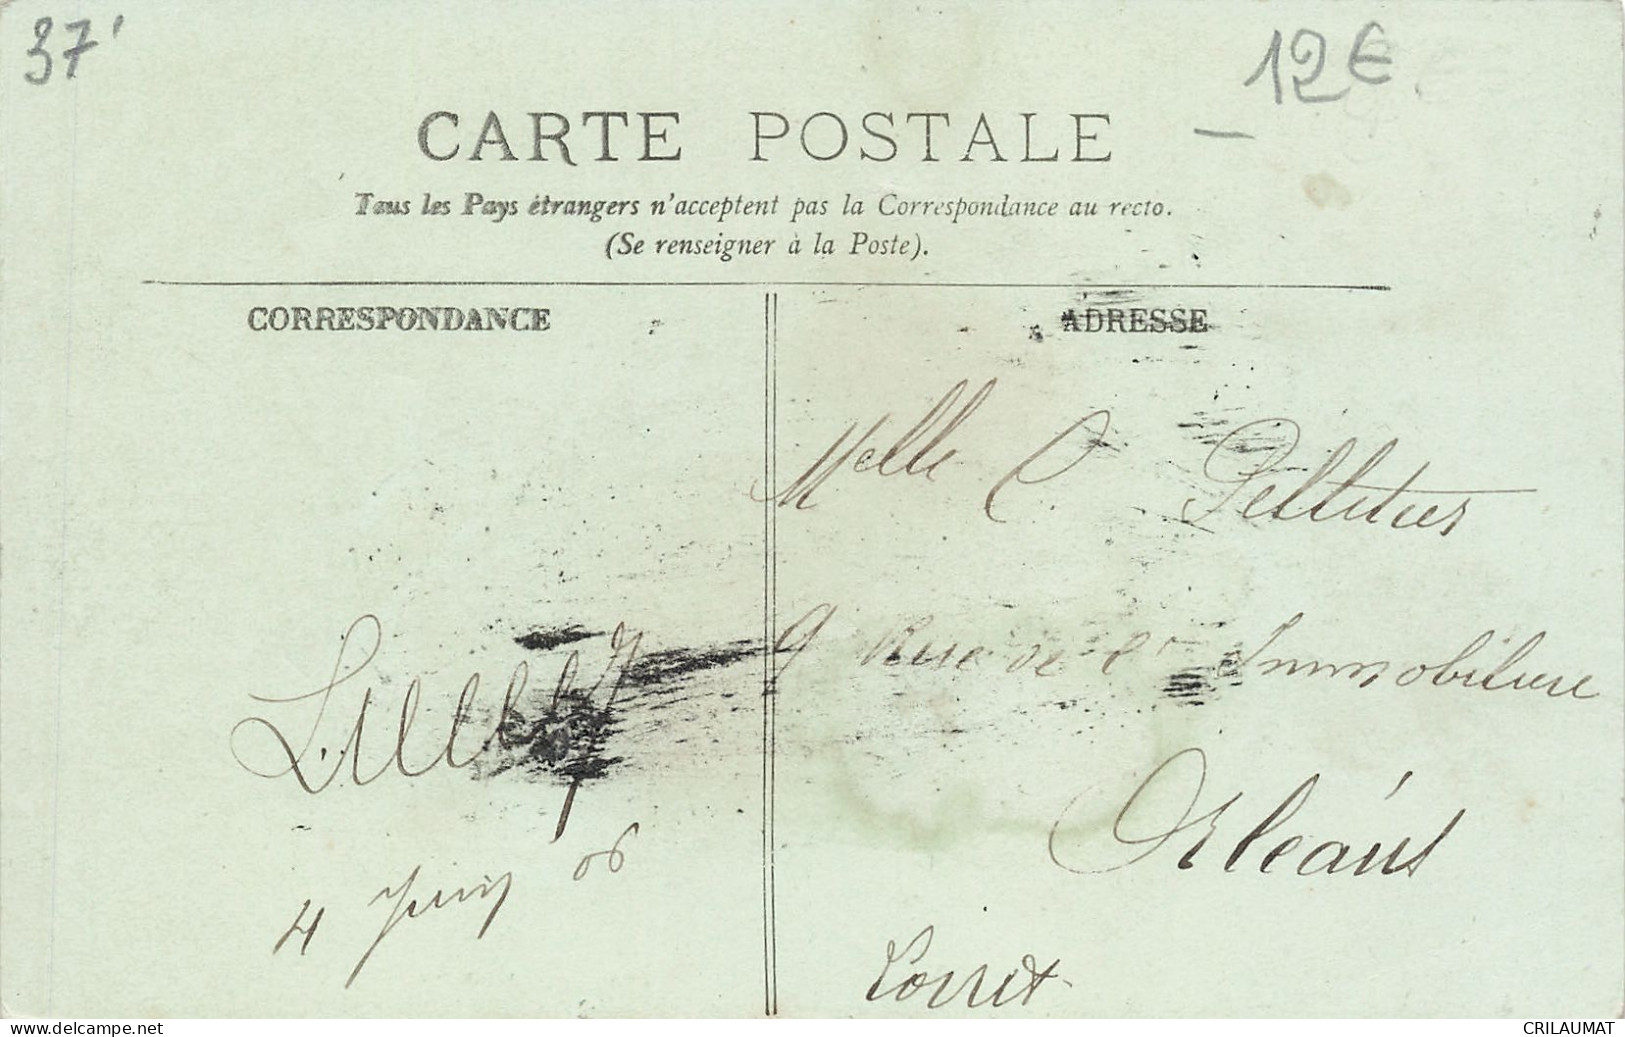 37'
12€
CARTE POSTALE
Tous les Pays étrangers n'acceptent pas la Correspondance au recto.
(Se renseigner à la Poste).
CORRESPONDANCE
ADRESSE
Melle C. Pelletier
9 Rue de l' Immobiliere
Orléans
Loiret
4 Juin 06
www.delcampe.net
CRILAUMAT